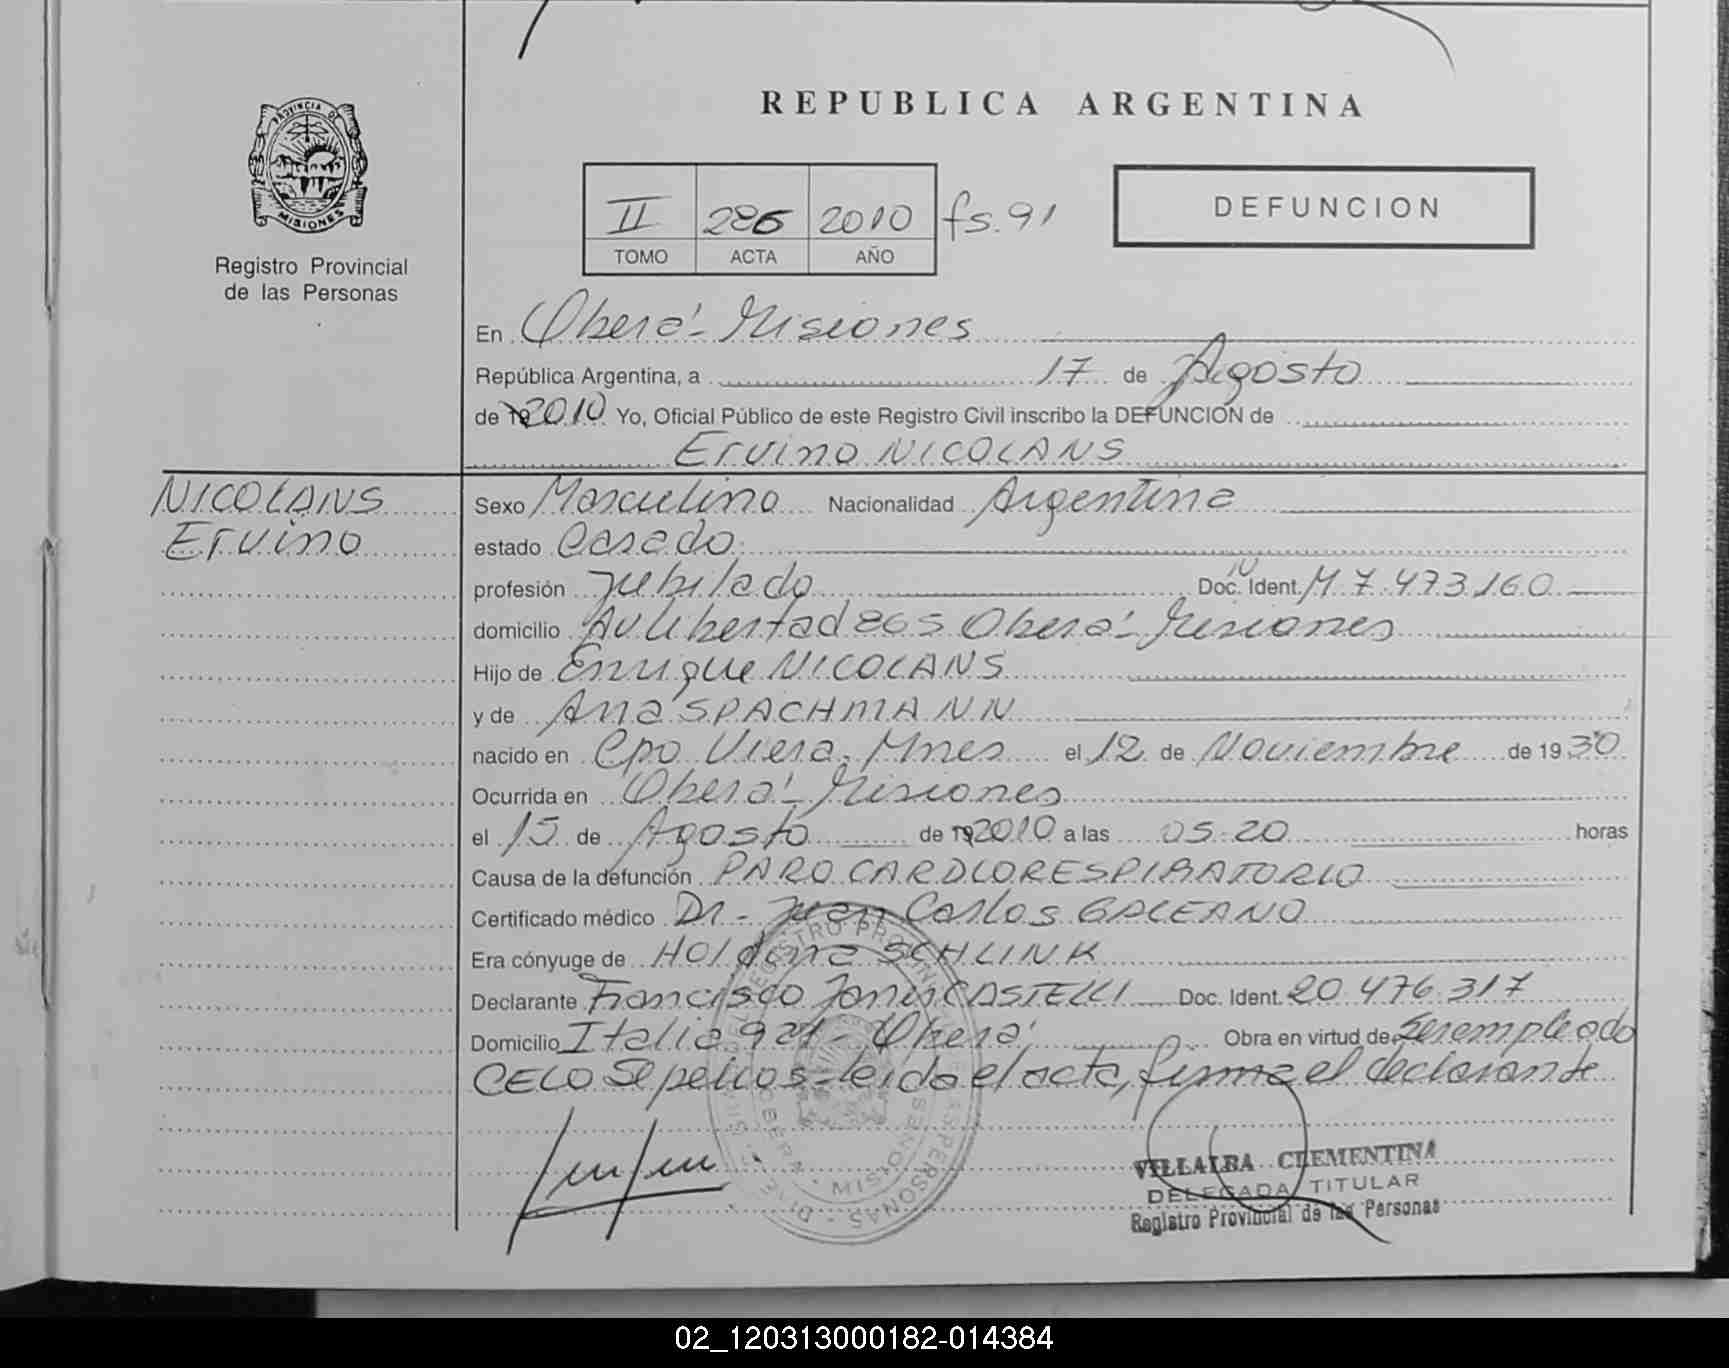 REPUBLICA ARGENTINA
PROVINCIA DE
MISIONES
Registro Provincial
de las Personas
II 286 2010 fs. 91
TOMO ACTA AÑO
DEFUNCION
En Oberá - Misiones
República Argentina, a 17 de Agosto
de 19 2010 Yo, Oficial Público de este Registro Civil inscribo la DEFUNCION de
Ervino NICOLANS
NICOLANS
Ervino
Sexo Masculino Nacionalidad Argentina
estado Casado.
profesión Jubilado Doc. Ident. M 7.473.160
domicilio Av Libertad 865 Oberá - Misiones
Hijo de Enrique NICOLANS
y de Ana SPACHMANN
nacido en Cpo Viera. Mnes el 12 de Noviembre de 1930
Ocurrida en Oberá - Misiones
el 15 de Agosto de 19 2010 a las 05:20 horas
Causa de la defunción PARO CARDIORESPIRATORIO
Certificado médico Dr - Juan Carlos GALEANO
Era cónyuge de Holdina SCHLINK
Declarante Francisco CASTELLI Doc. Ident. 20.476.317
Domicilio Italia 921 - Oberá Obra en virtud de Ser empleado
CELO Sepelios - leida el acta, firma el declarante
VILLALBA CLEMENTINA
DELEGADA TITULAR
Registro Provincial de las Personas
02_120313000182-014384